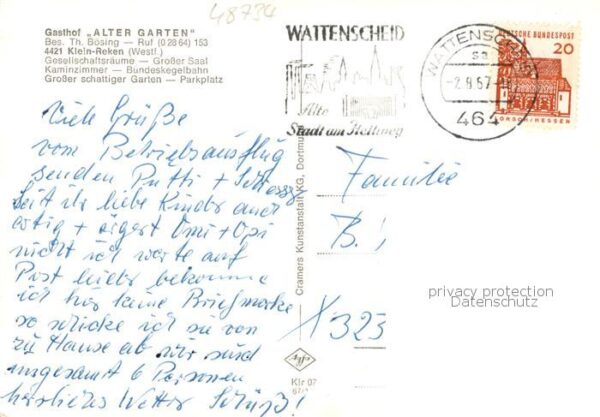 48794
Gasthof „ALTER GARTEN"
Bes. Th. Bösing — Ruf (0 28 64) 153
4421 Klein-Reken (Westf.)
Gesellschaftsräume — Großer Saal
Kaminzimmer — Bundeskegelbahn
Großer schattiger Garten — Parkplatz
WATTENSCHEID
Alte
Stadt am Hellweg
WATTENSCHEID
sa
-2.9.67
464
DEUTSCHE BUNDESPOST
20
LORSCH/HESSEN
Viele Grüße
vom Betriebsausflug
senden Putti +
Seid ihr liebe Kinder auch
artig + ärgert Omi + Opi
nicht ich warte auf
Post leider bekomme
ich hier keine Briefmarke
so schicke ich sie von
zu Hause ab wir sind
insgesamt 6 Personen
herrliches Wetter Tschüß!
Cramers Kunstanstalt KG, Dortmund
Familie
B.
X 323
privacy protection
Datenschutz
Agfa
Klr 07